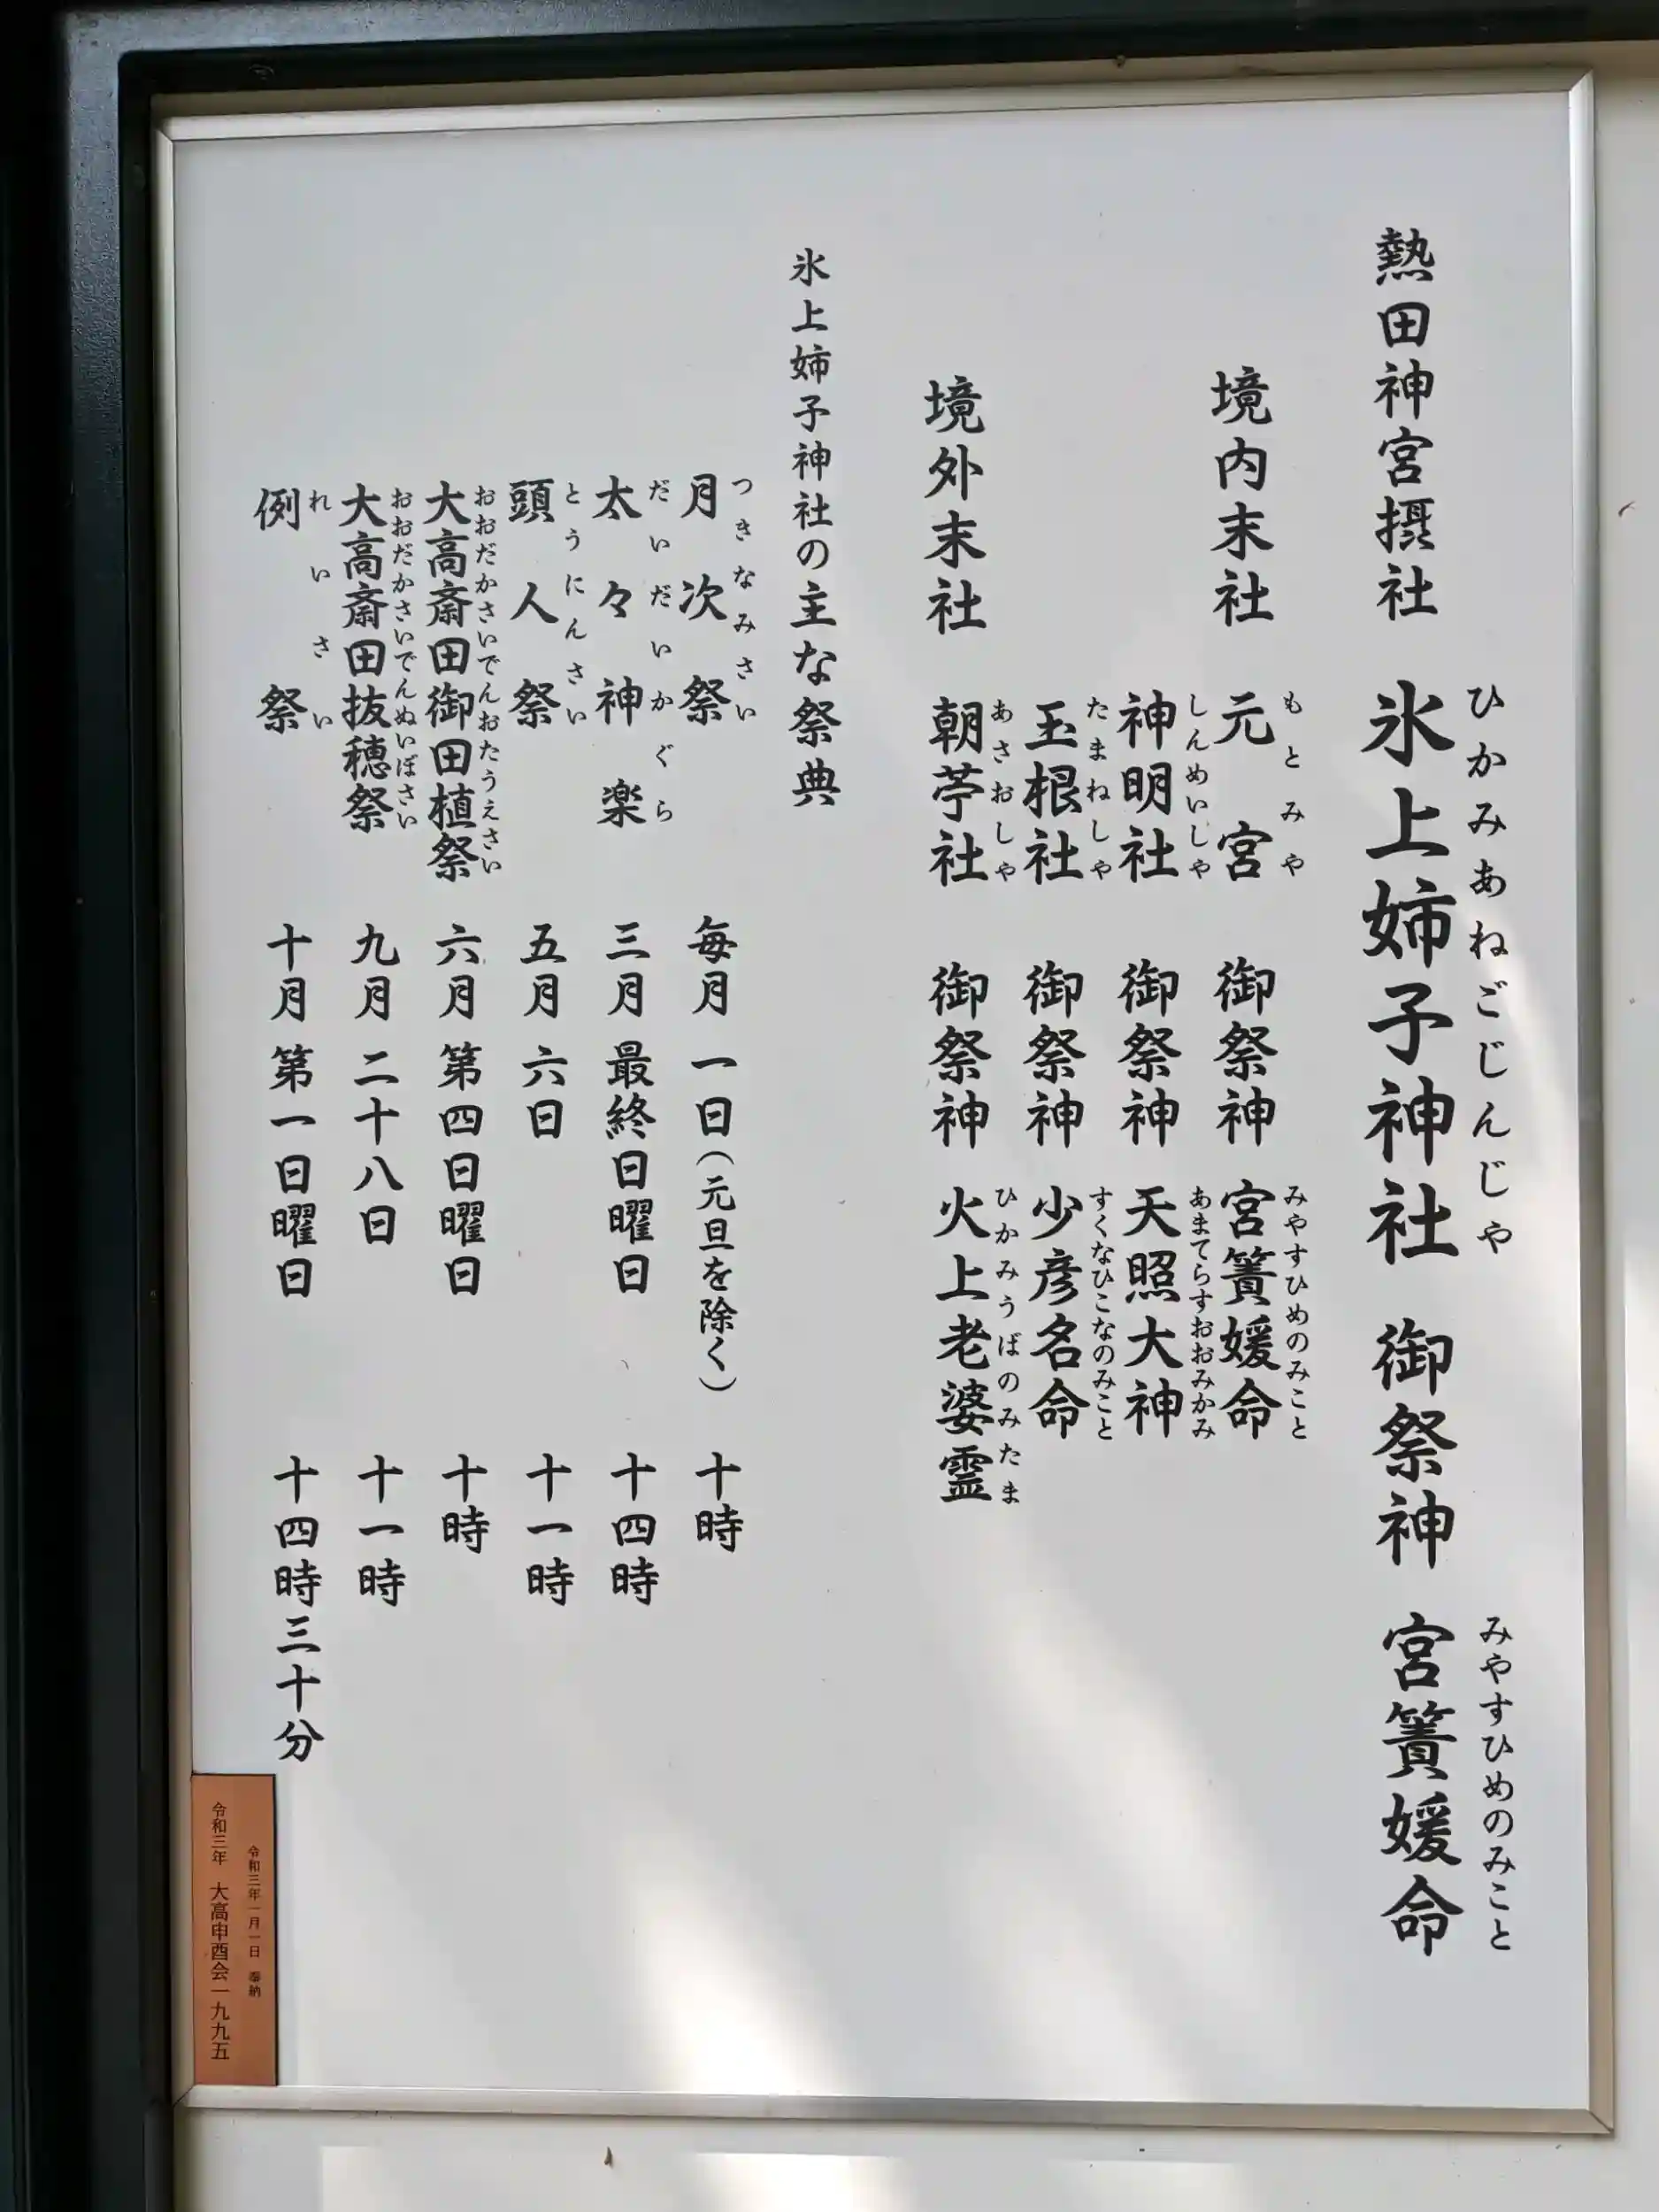 熱田神宮摂社 氷上姉子神社 御祭神 宮簀媛命
ひかみあねごじんじゃ みやすひめのみこと
境内末社 元宮 御祭神 宮簀媛命
もとみや みやすひめのみこと
神明社 御祭神 天照大神
しんめいしゃ あまてらすおおみかみ
玉根社 御祭神 少彦名命
たまねしゃ すくなひこなのみこと
境外末社 朝苧社 御祭神 火上老婆霊
あさおしゃ ひかみうばのみたま
氷上姉子神社の主な祭典
月次祭 毎月 一日(元旦を除く) 十時
つきなみさい
太々神楽 三月 最終日曜日 十四時
だいだいかぐら
頭人祭 五月 六日 十一時
とうにんさい
大高斎田御田植祭 六月 第四日曜日 十時
おおだかさいでんおたうえさい
大高斎田抜穂祭 九月 二十八日 十一時
おおだかさいでんぬいぼさい
例祭 十月 第一日曜日 十四時三十分
れいさい
令和三年一月一日 奉納
令和三年 大高申酉会一九九五